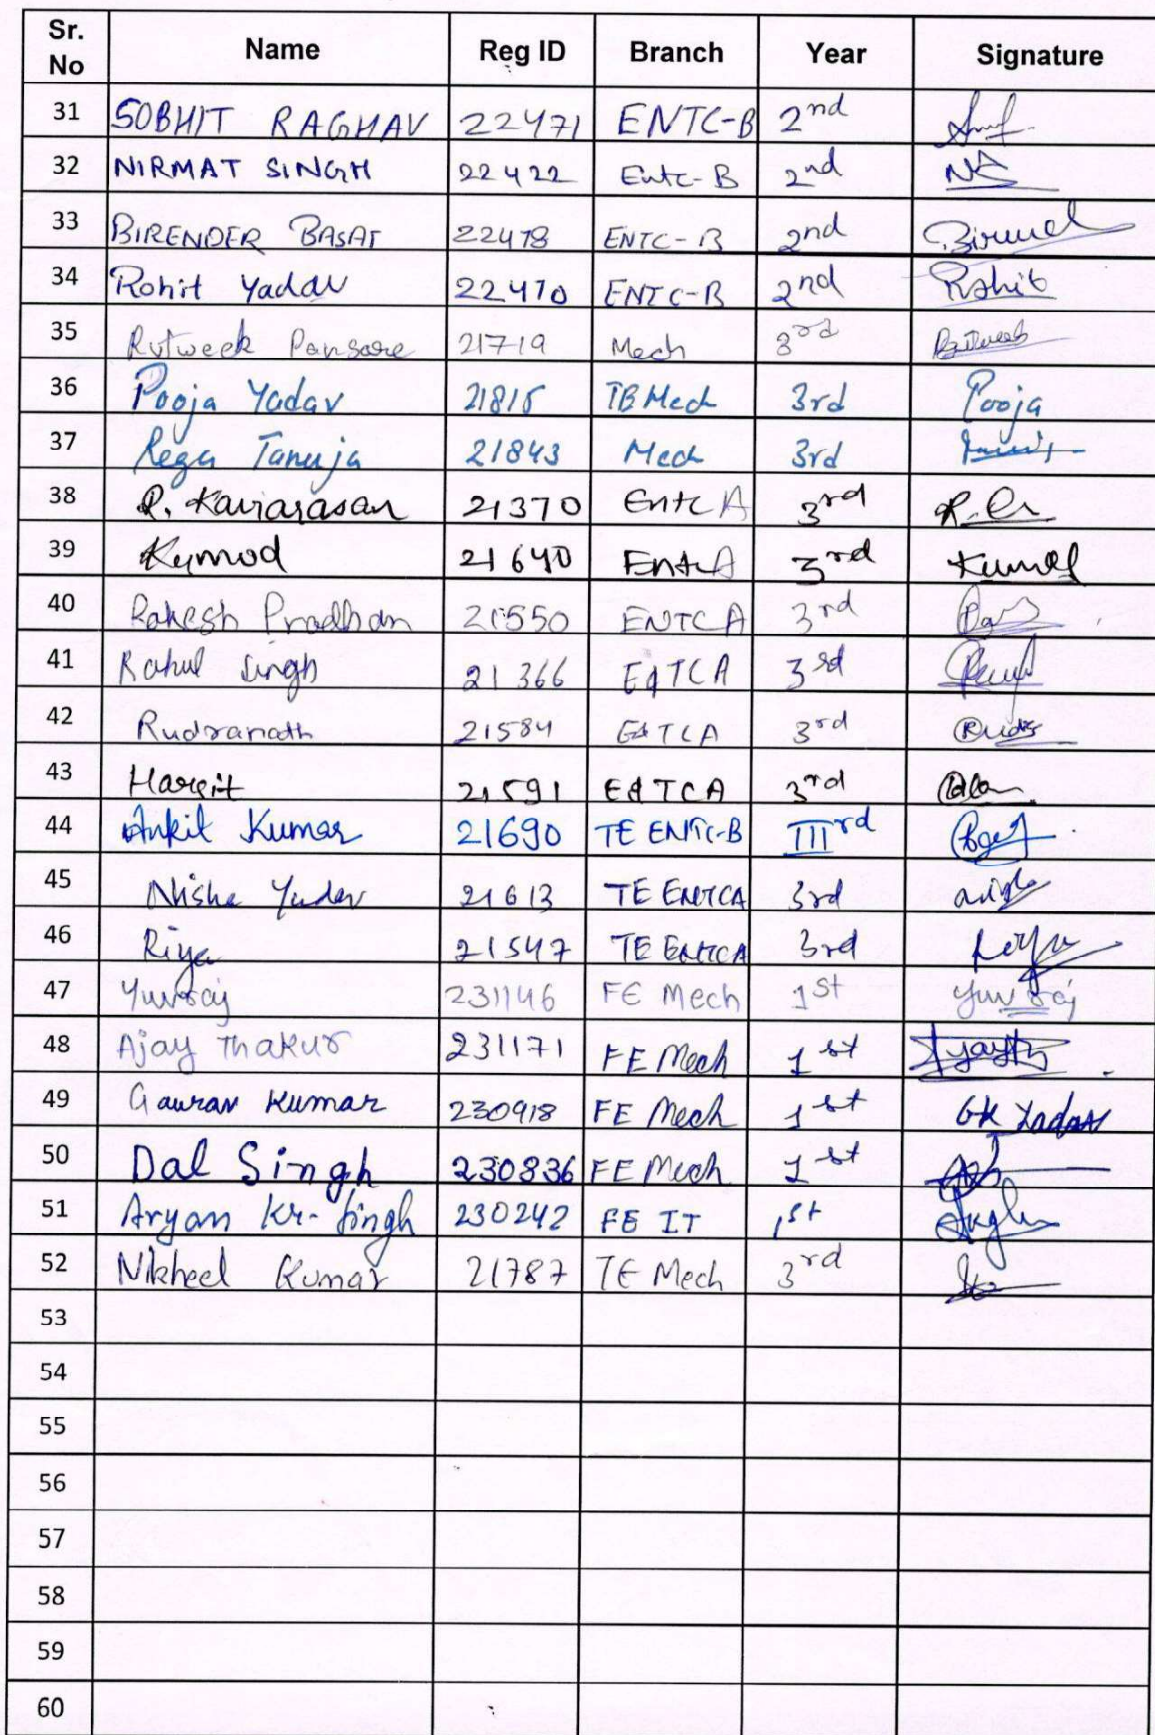 Sr. No Name Reg ID Branch Year Signature
31 SOBHIT RAGHAV 22471 ENTC-B 2nd
32 NIRMAT SINGH 22422 Entc-B 2nd NS
33 BIRENDER BASAT 22478 ENTC-B 2nd
34 Rohit Yadav 22470 ENTC-B 2nd Rohit
35 Rutweek Pansare 21719 Mech 3rd Rutweek
36 Pooja Yadav 21815 TB Mech 3rd Pooja
37 Rega Tanuja 21843 Mech 3rd
38 R. Kaviarasan 21370 Entc A 3rd
39 Kumod 21640 Entc A 3rd Kumod
40 Rakesh Pradhan 21550 ENTC A 3rd
41 Rahul Singh 21366 E&TCA 3rd
42 Rudranath 21584 E&TCA 3rd
43 Harjit 21591 E&TCA 3rd
44 Ankit Kumar 21690 TE ENTC-B IIIrd
45 Nisha Yadav 21613 TE ENTCA 3rd
46 Riya 21547 TE ENTCA 3rd Riya
47 Yuvraj 231146 FE Mech 1st Yuvraj
48 Ajay Thakur 231171 FE Mech 1st
49 Gaurav Kumar 230918 FE Mech 1st GK Yadav
50 Dal Singh 230836 FE Mech 1st
51 Aryan Kr. Singh 230242 FE IT 1st
52 Nikheel Kumar 21787 TE Mech 3rd
53
54
55
56
57
58
59
60